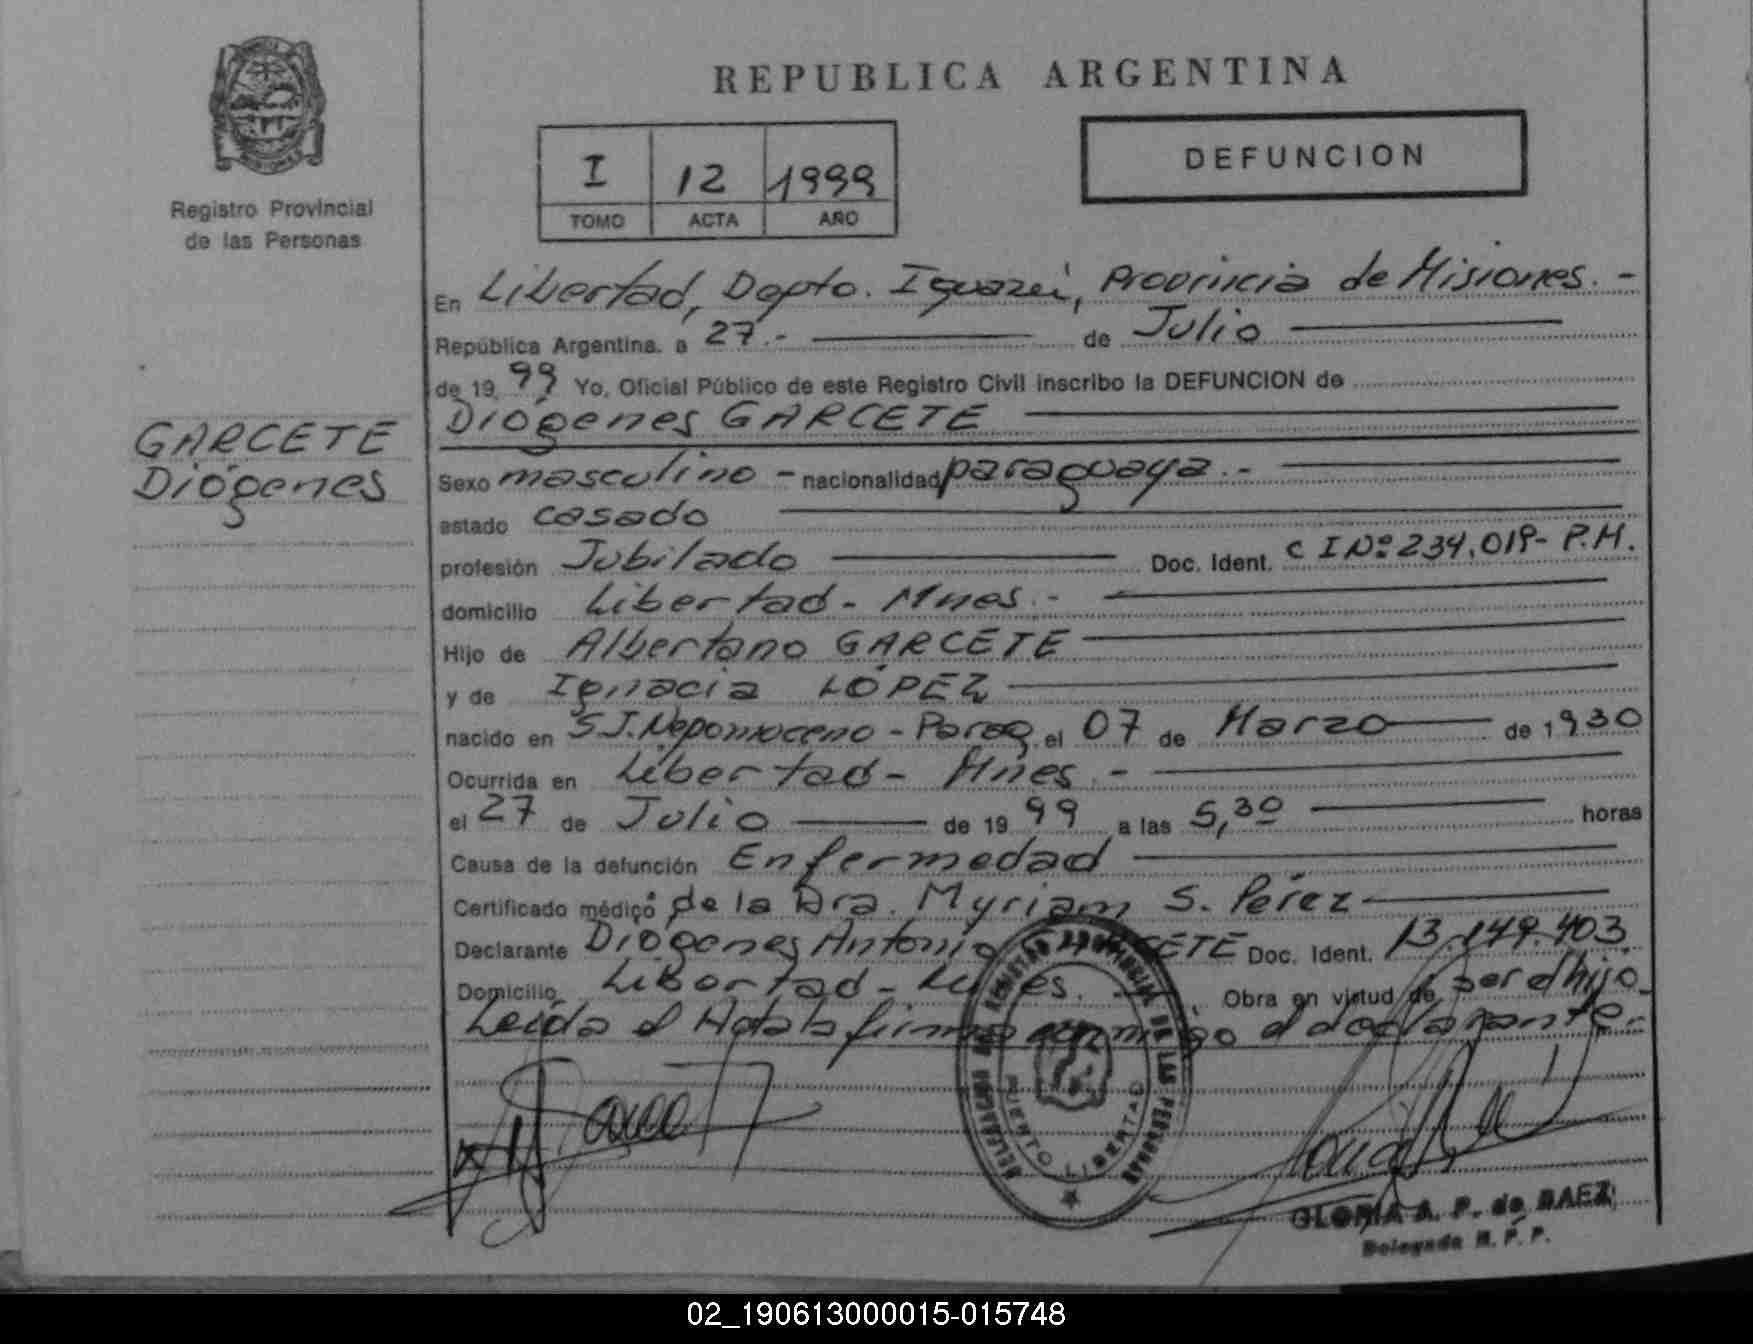 REPUBLICA ARGENTINA
DEFUNCION
I 12 1999
TOMO ACTA AÑO
Registro Provincial
de las Personas
GARCETE
Diógenes
En Libertad, Depto. Iguazú, Provincia de Misiones.-
República Argentina. a 27.- de Julio
de 19 99 Yo, Oficial Público de este Registro Civil inscribo la DEFUNCION de
Diógenes GARCETE
Sexo masculino - nacionalidad paraguaya.-
estado casado
profesión Jubilado Doc. Ident. C I Nº 234.019- P.M.
domicilio Libertad - Mnes.-
Hijo de Albertano GARCETE
y de Ignacia LÓPEZ
nacido en S.J. Nepomoceno - Parag. el 07 de Marzo de 1930
Ocurrida en Libertad - Mnes.-
el 27 de Julio de 19 99 a las 5,30 horas
Causa de la defunción Enfermedad
Certificado médico de la Dra. Myriam S. Pérez
Declarante Diógenes Antonio Doc. Ident. 13.149.403
Domicilio Libertad - Obra en virtud de ser el hijo.
Leída el Acta la firma conmigo el declarante.-
DELEGACION DEL REGISTRO PROVINCIAL DE LAS PERSONAS
PUERTO LIBERTAD
GLORIA A. P. de BAEZ
Delegada R. P. P.
02_190613000015-015748